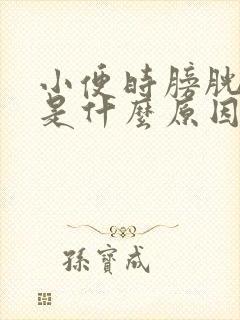 小便時膀胱
是什麼原因
孫寶成